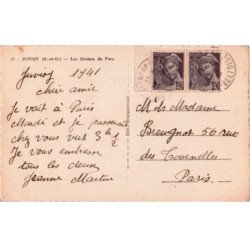 JUVISY (S.-et-O.) - Les Grottes du Parc
Juvisy 1941
cher amie
Je vait à Paris
Mardi et je passerais
chez vous vert 3 h 1/2
Je vous embrasse
tous les deux
Jeanne Martin
M et Madame
56 rue
des Tournelles
Paris